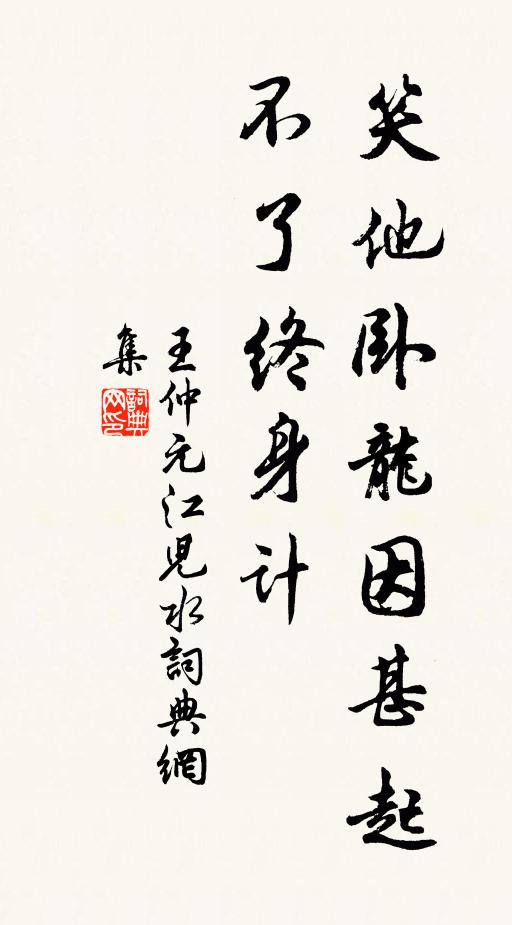 笑他卧龍因甚起
不了終身計
王仲元江兒水詞典網
集
詞典
网印